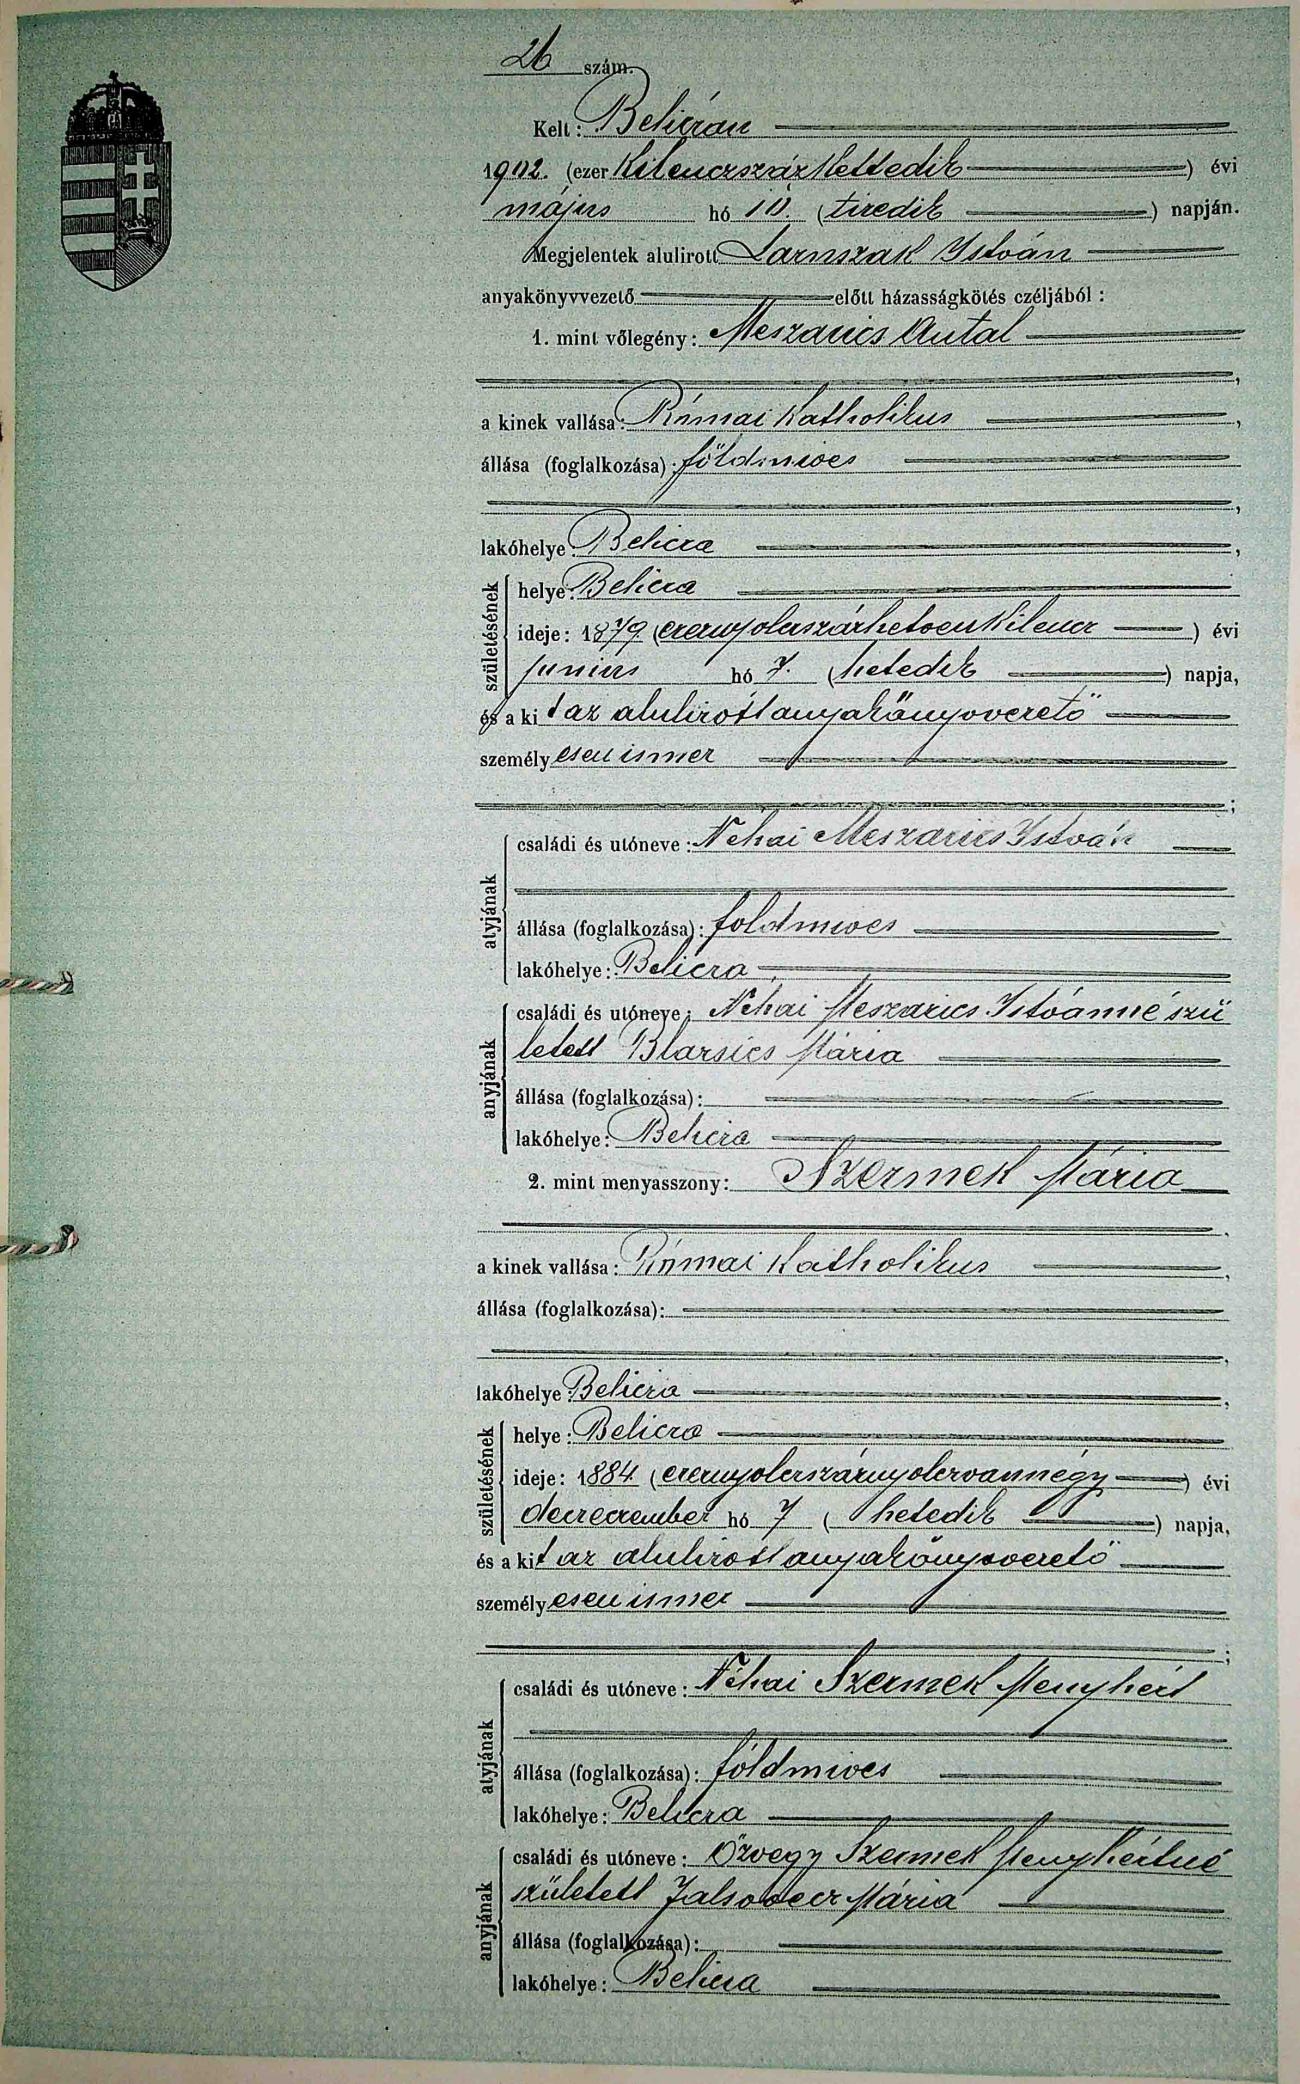 26 szám.
Kelt: Beliczán
1902. (ezer kilenczszáz kettedik) évi
május hó 10. (tizedik) napján.
Megjelentek alulirott Larnszak István
anyakönyvvezető előtt házasságkötés czéljából:
1. mint vőlegény: Meszarics Antal
a kinek vallása: Római katholikus
állása (foglalkozása): földmives
lakóhelye: Belicza
születésének
helye: Belicza
ideje: 1879 (ezernyolczszázhetvenkilencz) évi
junius hó 7. (hetedik) napja,
és a kit az alulirott anyakönyvvezető
személyesen ismer
atyjának
családi és utóneve: Néhai Meszarics István
állása (foglalkozása): földmives
lakóhelye: Belicza
anyjának
családi és utóneve: Néhai Meszarics Istvánné szü
letett Blarsics Mária
állása (foglalkozása):
lakóhelye: Belicza
2. mint menyasszony: Szermek Mária
a kinek vallása: Római katholikus
állása (foglalkozása):
lakóhelye: Belicza
születésének
helye: Belicza
ideje: 1884 (ezernyolczszáznyolczvannégy) évi
deczeczember hó 7 (hetedik) napja,
és a kit az alulirott anyakönyvvezető
személyesen ismer
atyjának
családi és utóneve: Néhai Szermek Menyhért
állása (foglalkozása): földmives
lakóhelye: Belicza
anyjának
családi és utóneve: Özvegy Szermek Menyhértné
született Jalsovecz Mária
állása (foglalkozása):
lakóhelye: Belicza